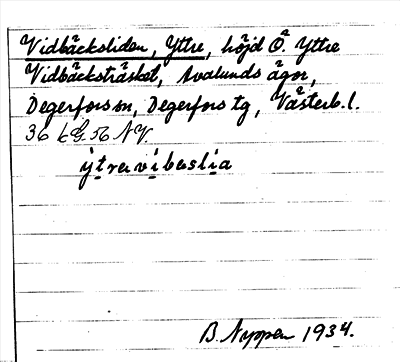 Vidbäcksliden, Yttre, höjd Ö. Yttre
Vidbäcksträsket, Avalunds ägor,
Degerfors sn, Degerfors tg, Västerb. l.
36 b G. 56 NV.
ytravibaslia
B. Nyppen 1934.